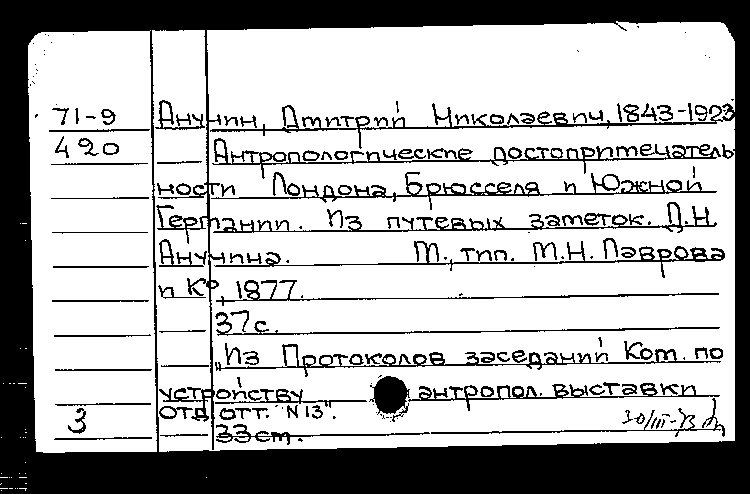 71-9 Анучин, Дмитрий Николаевич, 1843-1923
420 Антропологические достопримечатель-
ности Лондона, Брюсселя и Южной
Германии. Из путевых заметок. Д.Н.
Анучина. М., тип. М.Н. Лаврова
и К°, 1877.
37с.
"Из Протоколов заседаний Ком. по
устройству антропол. выставки
отд. отт. "N 13".
3 33см.
30/III-73